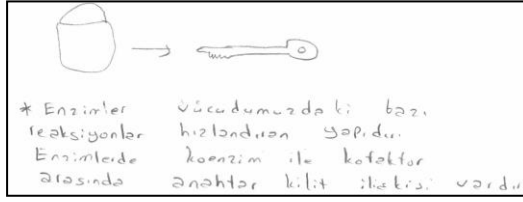 * Enzimler vücudumuzdaki bazı
reaksiyonlar hızlandıran yapıdır.
Enzimlerde koenzim ile kofaktör
arasında anahtar kilit ilişkisi vardır